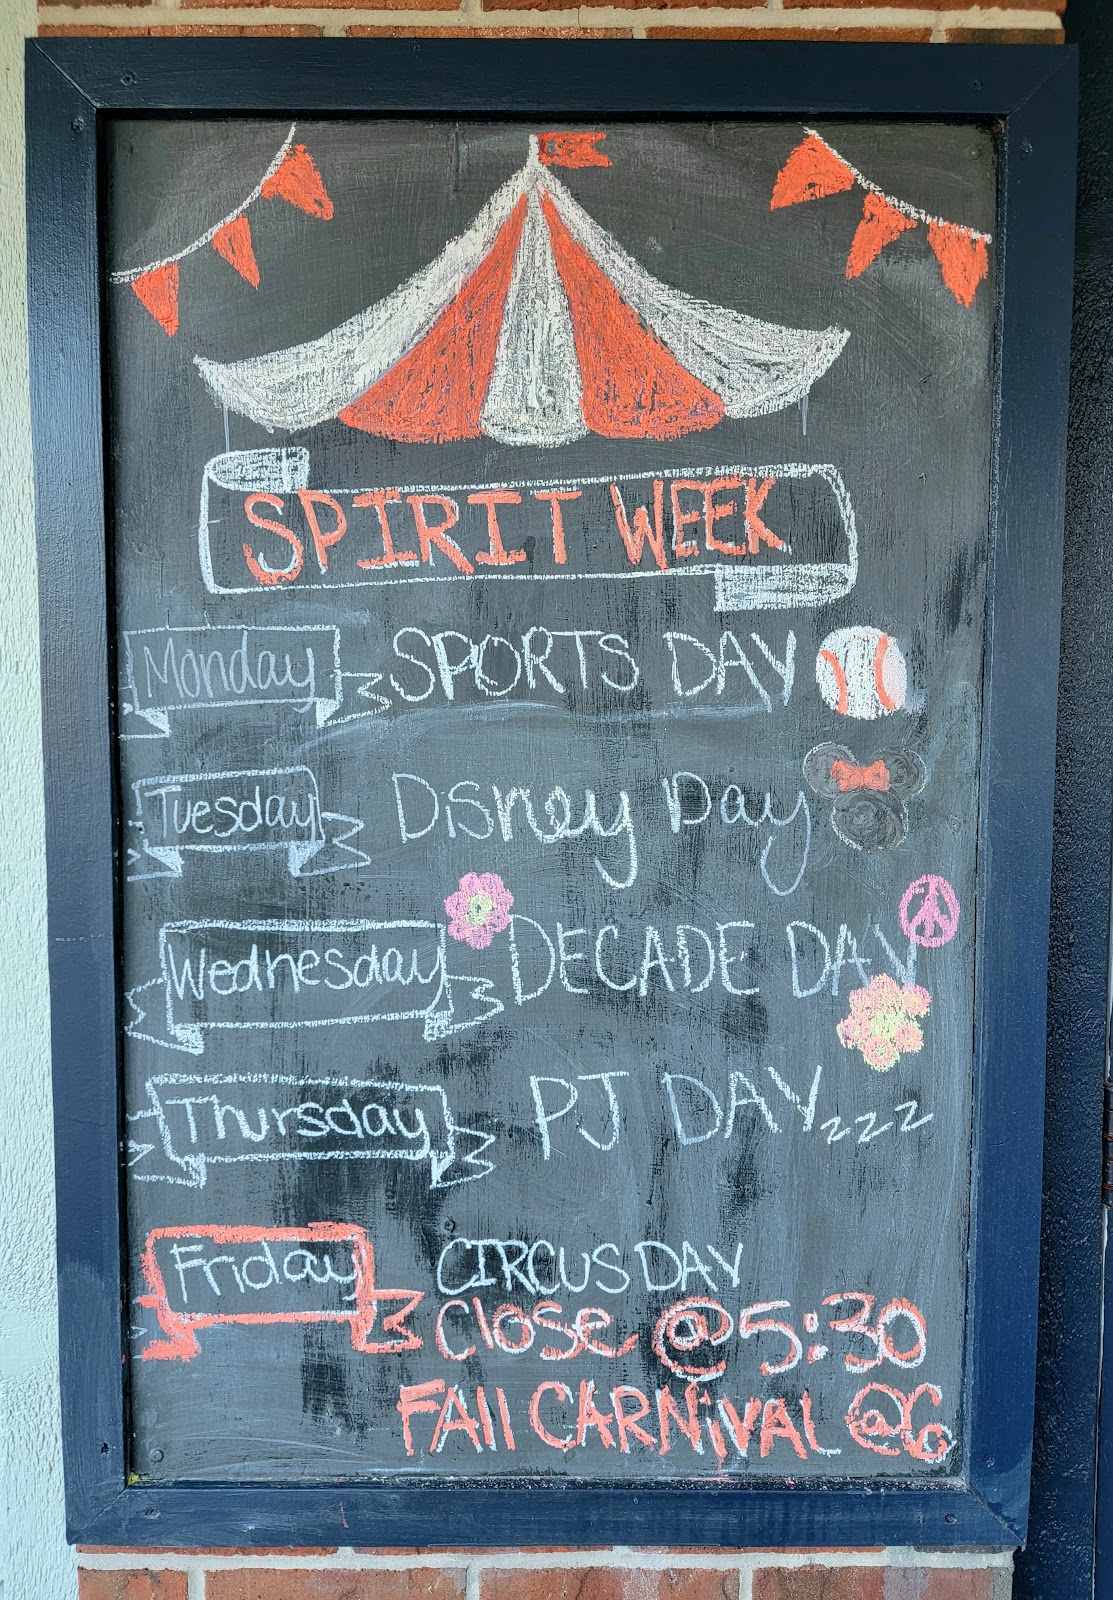 SPIRIT WEEK
Monday SPORTS DAY
Tuesday Disney Day
Wednesday DECADE DAY
Thursday PJ DAY zzz
Friday CIRCUS DAY
Close @ 5:30
FAll CARNiVAL @ 6